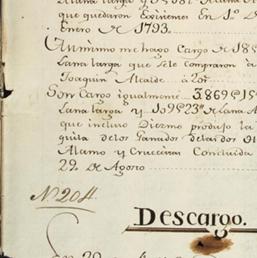 que quedaron Exsisenes En 1.º D
Enero de 1793.
Asimismo me hago Cargo de 185
Lana larga que se le compraron a
Joaquin Alcalde a 20
Son Cargo igualmente 3869@15
Lana larga y 109@23 Lana A
que incluso Diezmo produjo la
quila de los Ganados de las
Alamo y Cruceiras Concluida
29. de Agosto
N.º 204.
Descargo.